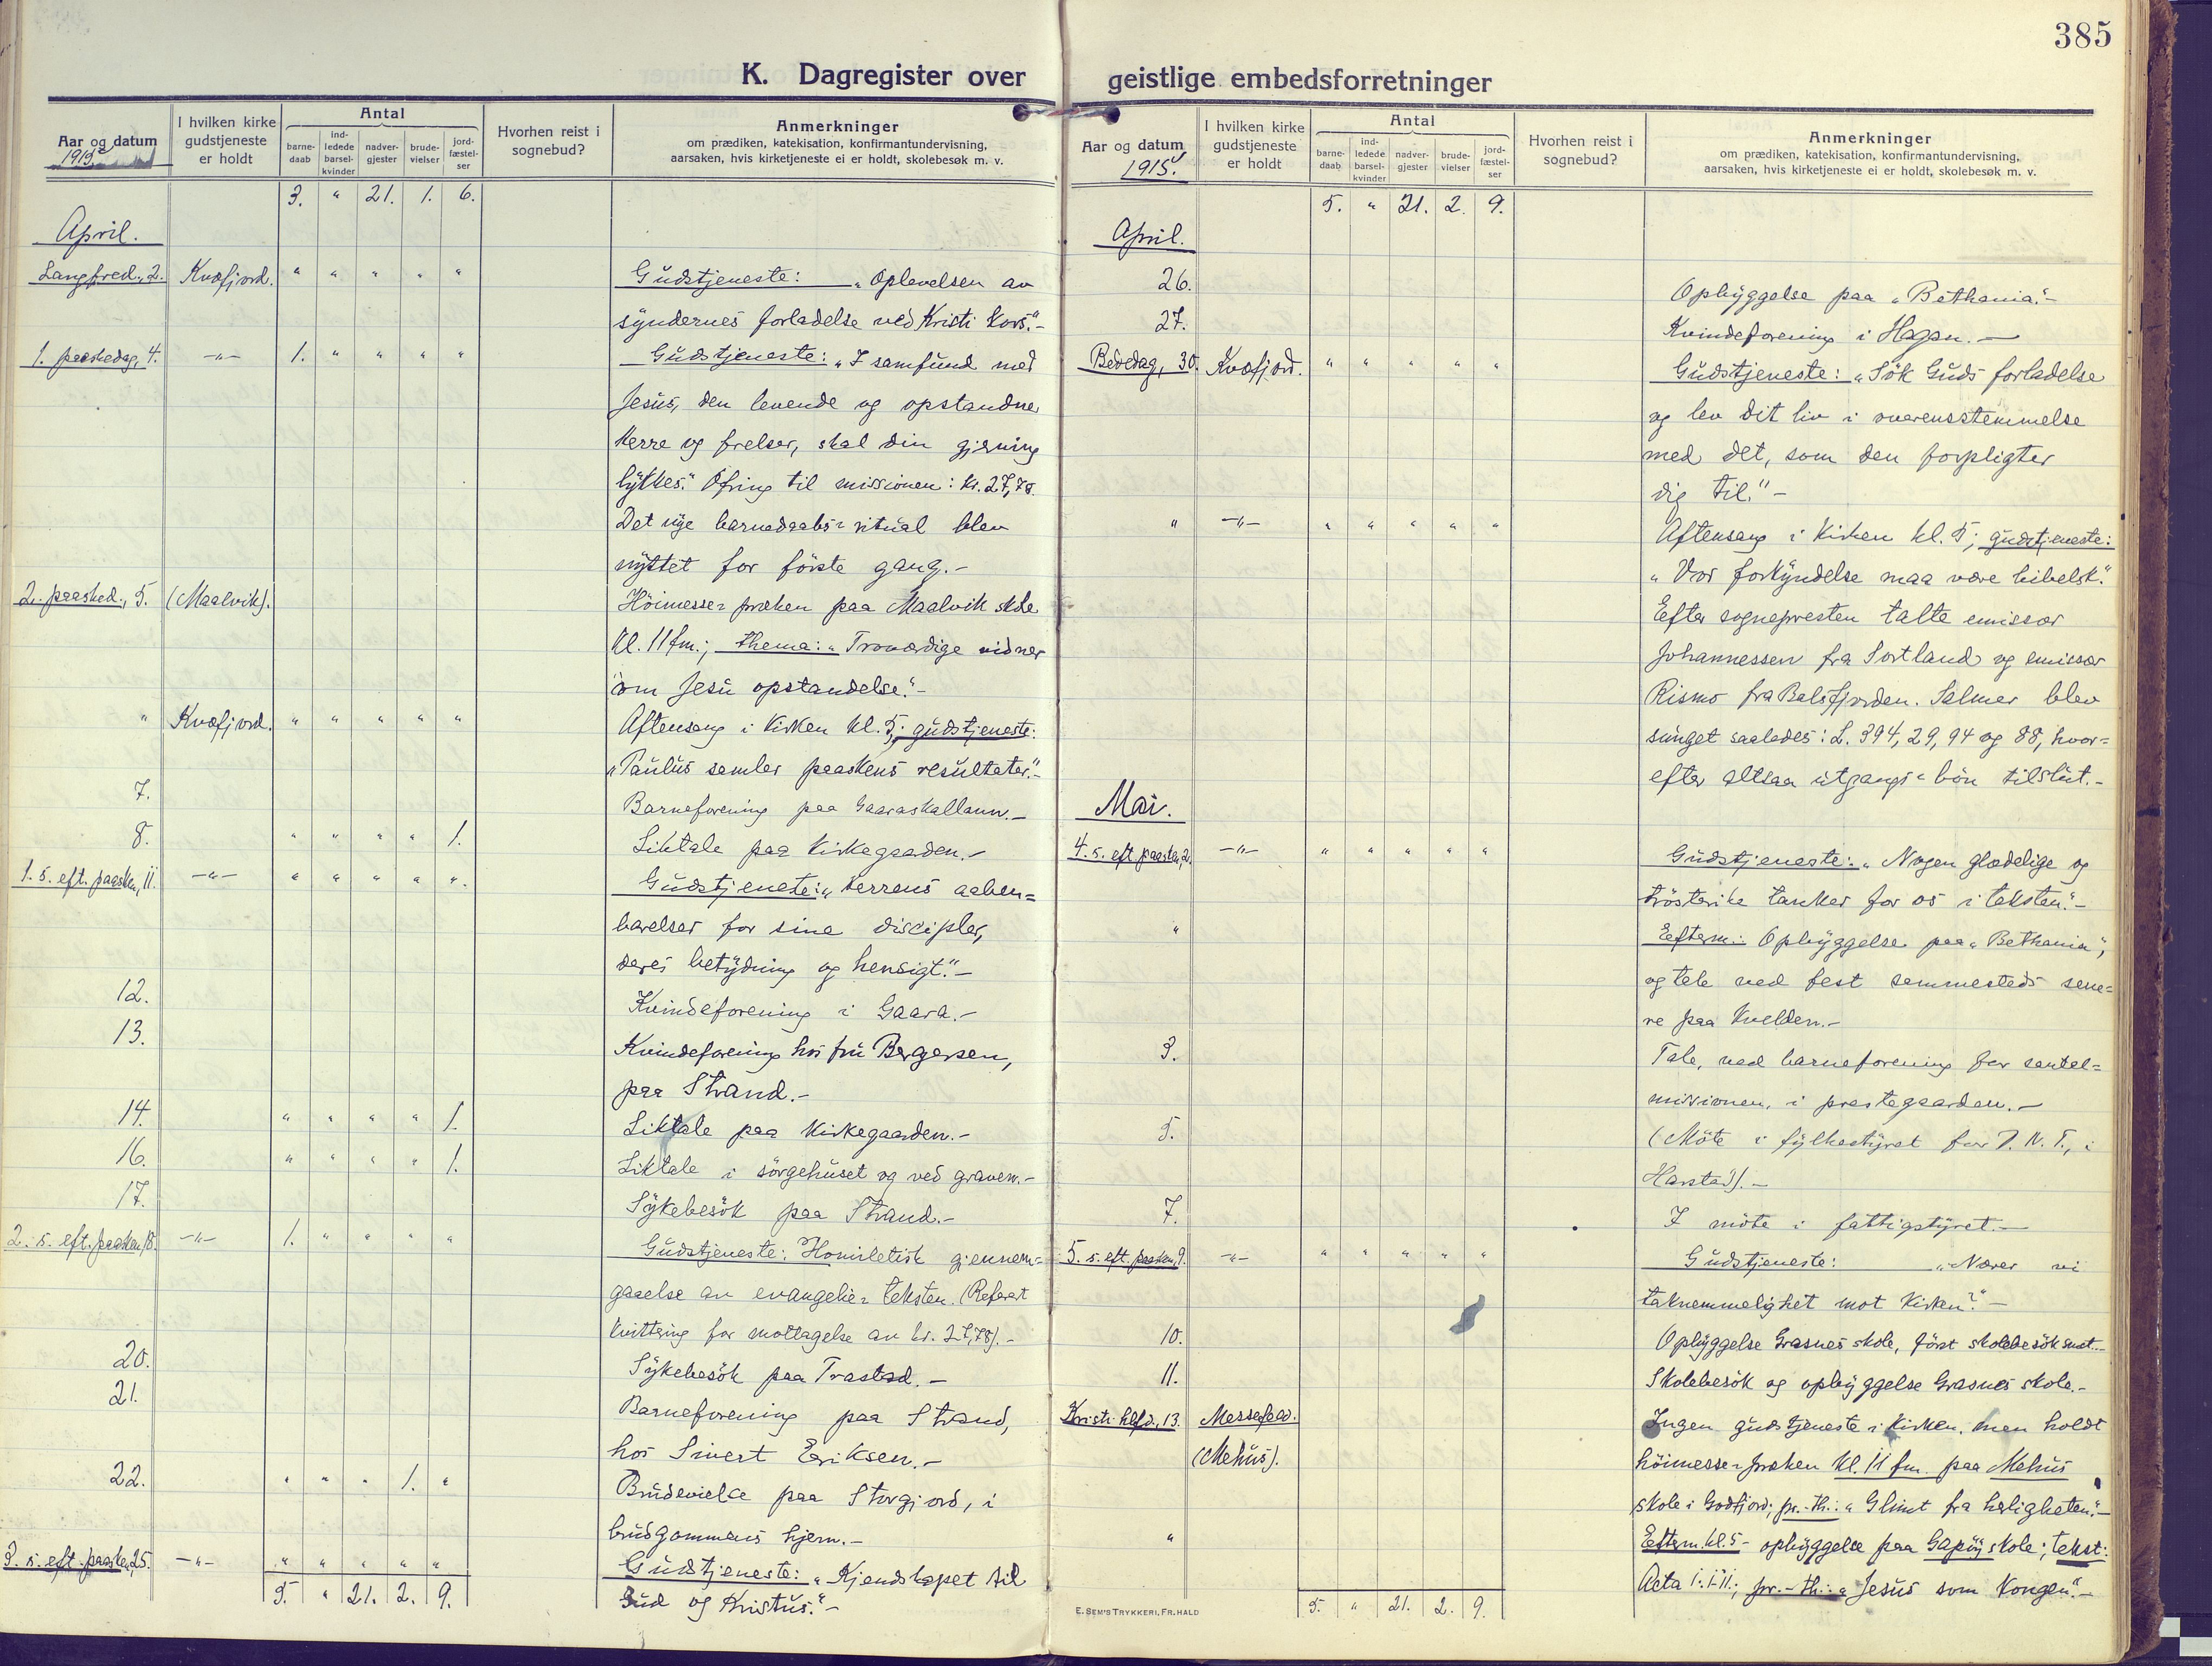 385
K. Dagregister over geistlige embedsforretninger
Aar og datum
1915.
I hvilken kirke gudstjeneste er holdt
Antal
barne-daab
ind-ledede barsel-kvinder
nadver-gjester
brude-vielser
jord-fæstel-ser
Hvorhen reist i sognebud?
Anmerkninger
om prædiken, katekisation, konfirmantundervisning,
aarsaken, hvis kirketjeneste ei er holdt, skolebesøk m. v.
3. " 21. 1. 6.
April.
Langfred., 2. Kvæfjord. " " " " " Gudstjeneste: „Oplevelsen av
syndernes forladelse ved Kristi kors."-
1. paaskedag, 4. -"- 1. " " " " Gudstjeneste: „I samfund med
Jesus, den levende og opstandne
herre og frelser, skal din gjerning
lykkes." Ofring til missionen: kr. 27,78.
Det nye barnedaabs-ritual blev
nyttet for förste gang.-
2. paasked., 5. (Maalvik). Höimesse-præken paa Maalvik skole
kl. 11 fm.; thema: „Troværdige vidner
om Jesu opstandelse."-
" Kvæfjord. " " " " " Aftensang i kirken kl. 5; gudstjeneste:
„Paulus samler paaskens resultater."-
7. Barneforening paa Gaaraskallann.-
8. " " " " 1. Liktale paa kirkegaarden.-
1. s. eft. paasken, 11. -"- " " " " ". Gudstjeneste: „Herrens aaben=
barelser for sine disciple,
deres betydning og hensigt."-
12. Kvindeforening i Gaara.-
13. Kvindeforening hos fru Bergersen,
paa Strand.-
14. " " " " 1. Liktale paa kirkegaarden.-
16. " " " " 1. Liktale i sörgehuset og ved graven.-
17. Sykebesök paa Strand.-
2. s. eft. paasken, 18. -"- 1. " " " " Gudstjeneste: Homiletisk gjennem=
gaaelse av evangelie-teksten. (Referert
kvittering for mottagelse av kr. 27,78).-
20. Sykebesök paa Trastad.-
21. Barneforening paa Strand,
hos Sivert Eriksen.-
22. " " " 1. " Brudevielse paa Storgjord, i
brudgommens hjem.-
3. s. eft. paaske, 25. -"- " " " " " Gudstjeneste: „Kjendskapet til
Gud og Kristus."-
5. " 21. 2. 9.
Aar og datum
1915.
I hvilken kirke gudstjeneste er holdt
Antal
barne-daab
ind-ledede barsel-kvinder
nadver-gjester
brude-vielser
jord-fæstel-ser
Hvorhen reist i sognebud?
Anmerkninger
om prædiken, katekisation, konfirmantundervisning,
aarsaken, hvis kirketjeneste ei er holdt, skolebesøk m. v.
5. " 21. 2. 9.
April.
26. Opbyggelse paa „Bethania."-
27. Kvindeforening i
Bededag, 30. Kvæfjord. " " " " " Gudstjeneste: „Sök Guds forladelse
og lev dit liv i overensstemmelse
med det, som den forpligter
dig til."-
" -"- " " " " " Aftensang i kirken kl. 5; gudstjeneste:
„Vor forkyndelse maa være bibelsk."
Efter sognepresten talte emissær
Johannessen fra Sortland og emissær
Rismo fra Balsfjorden. Salmer blev
sunget saaledes: L. 394, 29, 94 og 88, hvor=
efter altsaa utgangs-bön tilslut.-
Mai.
4. s. eft. paasken, 2. -"- " " " " " Gudstjeneste: „Nogen glædelige og
trösterike tanker for os i teksten."-
" Efterm.: Opbyggelse paa „Bethania",
og tale ved fest sammesteds sene=
re paa kvelden.-
3. Tale, ved barneforening for santal=
missionen, i prestegaarden.-
5. (Möte i fylkestyret for D. N. T., i
Harstad).-
7. I möte i fattigstyret.-
5. s. eft. paasken, 9. -"- " " " " " Gudstjeneste: „Nærer vi
taknemmelighet mot kirken?"-
10. Opbyggelse Grasnes skole, först skolebesök smst.-
11. Skolebesök og opbyggelse Grasnes skole.-
Kristi hlfd., 13. Messefald. Ingen gudstjeneste i kirken, men holdt
(Mehus). höimesse-præken kl. 11 fm. paa Mehus
skole i Godfjord; pr.-th.: „Glimt fra herligheten."-
" Efterm. kl. 5 - opbyggelse paa Gapöy skole; tekst:
Acta 1: 1-11; pr.-th.: „Jesus som kongen."-
E. SEM'S TRYKKERI, FR. HALD
5. " 21. 2. 9.